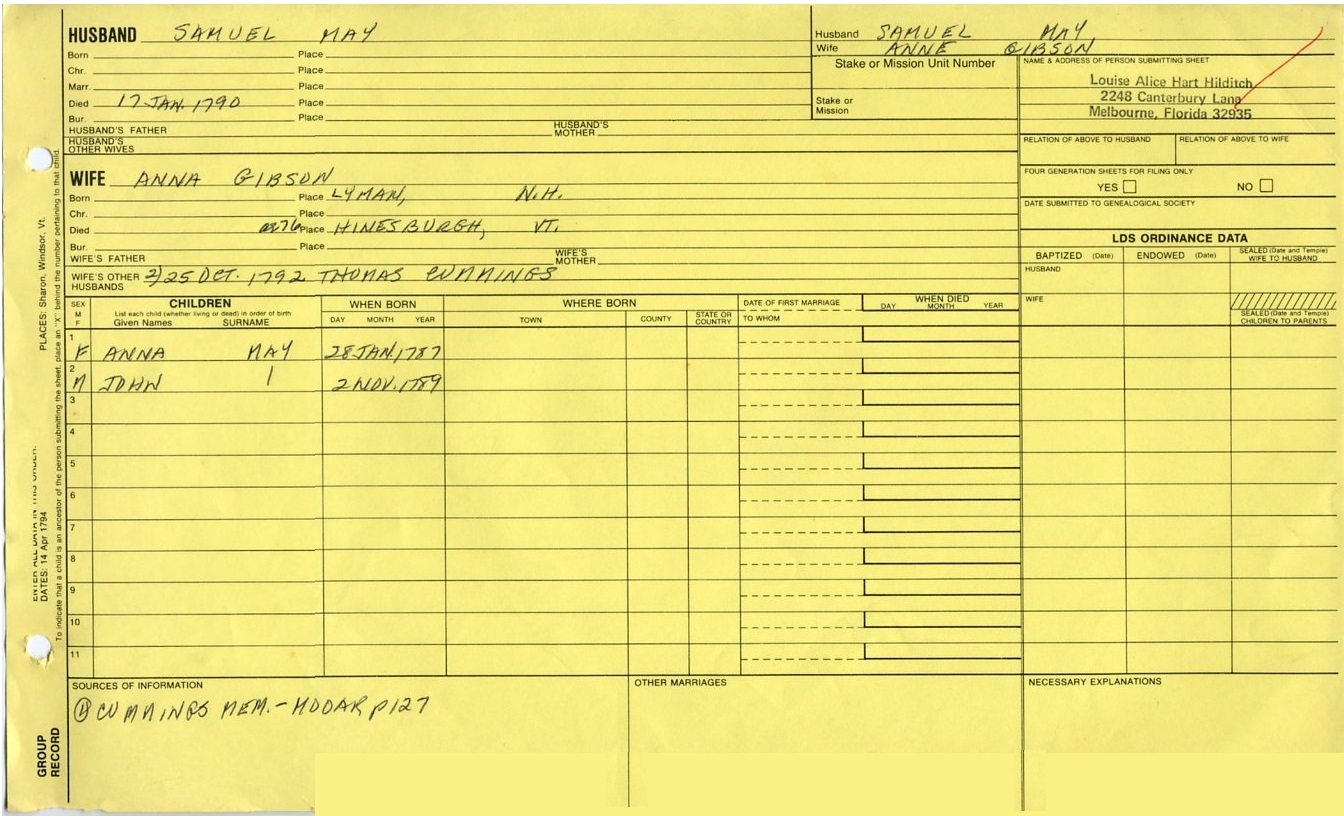 HUSBAND SAMUEL MAY
Born Place
Chr. Place
Marr. Place
Died 17 JAN. 1790 Place
Bur. Place
HUSBAND'S FATHER HUSBAND'S MOTHER
HUSBAND'S OTHER WIVES
Husband SAMUEL MAY
Wife ANNE GIBSON
Stake or Mission Unit Number
Stake or Mission
NAME & ADDRESS OF PERSON SUBMITTING SHEET
Louise Alice Hart Hilditch
2248 Canterbury Lane
Melbourne, Florida 32935
RELATION OF ABOVE TO HUSBAND RELATION OF ABOVE TO WIFE
FOUR GENERATION SHEETS FOR FILING ONLY
YES NO
DATE SUBMITTED TO GENEALOGICAL SOCIETY
WIFE ANNA GIBSON
Born Place LYMAN, N.H.
Chr. Place
Died ae 76 Place HINESBURGH, VT.
Bur. Place
WIFE'S FATHER WIFE'S MOTHER
WIFE'S OTHER HUSBANDS 2) 25 OCT. 1792 THOMAS CUMMINGS
LDS ORDINANCE DATA
BAPTIZED (Date) ENDOWED (Date) SEALED (Date and Temple) WIFE TO HUSBAND
HUSBAND
WIFE
SEALED (Date and Temple) CHILDREN TO PARENTS
SEX M F
CHILDREN
List each child (whether living or dead) in order of birth
Given Names SURNAME
WHEN BORN
DAY MONTH YEAR
WHERE BORN
TOWN COUNTY STATE OR COUNTRY
DATE OF FIRST MARRIAGE
TO WHOM
WHEN DIED
DAY MONTH YEAR
1
F ANNA MAY 28 JAN. 1787
2
M JOHN 2 NOV. 1789
3
4
5
6
7
8
9
10
11
SOURCES OF INFORMATION
CUMMINGS MEM. - MOOAR p 127
OTHER MARRIAGES
NECESSARY EXPLANATIONS
PLACES: Sharon, Windsor, Vt.
ENTER ALL DATA IN THIS ORDER:
DATES: 14 Apr 1794
To indicate that a child is an ancestor of the person submitting the sheet, place an "X" behind the number pertaining to that child.
GROUP RECORD